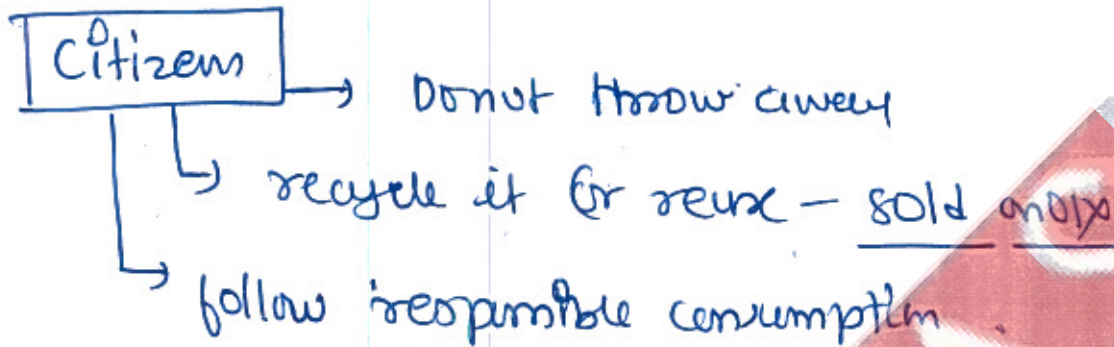 Citizens
Donot throw away
recycle it or reuse – sold on OLX
follow responsible consumption.